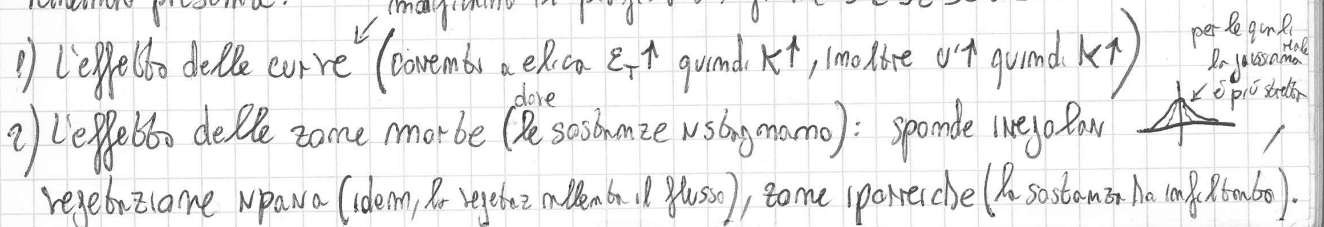 1) L'effetto delle curve (corrente a elica ε_T↑ quindi K↑, inoltre u'↑ quindi K↑)
per le quali
la gaussiana reale
è più stretta
dove
2) L'effetto delle zone morte (le sostanze ristagnano): sponde irregolari,
vegetazione riparia (idem, la vegetaz rallenta il flusso), zone iporreiche (la sostanza ha infiltrato).